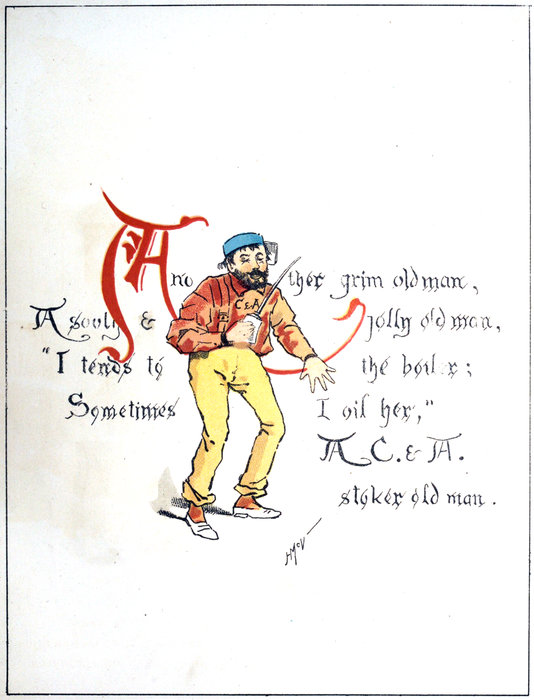 Another grim old man,
A sooty & jolly old man,
"I tends to the boiler;
Sometimes I oil her,"
A C. & A.
stoker old man.
C & A
HMcV